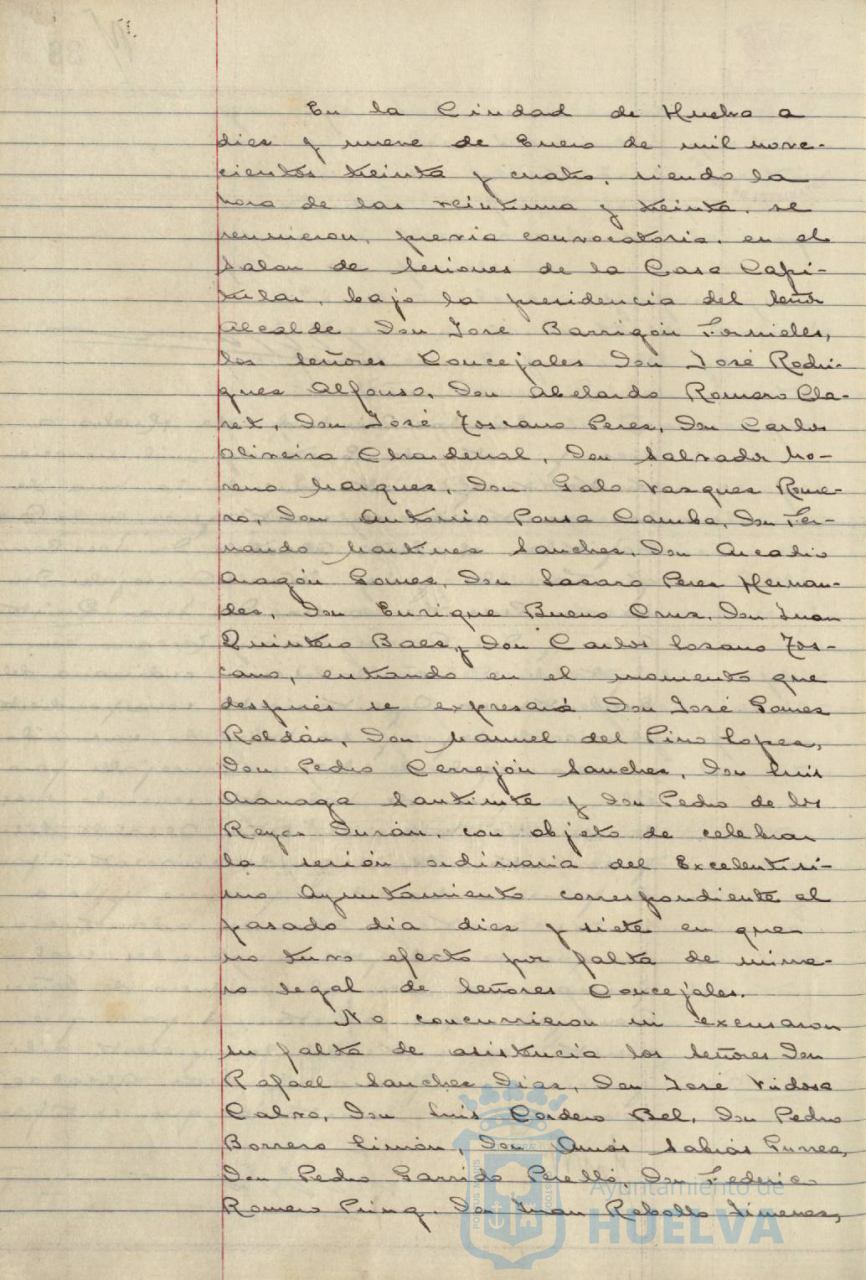 En la Ciudad de Huelva a
diez y nueve de Enero de mil nove-
cientos treinta y cuatro, siendo la
hora de las veintiuna y treinta, se
reunieron, previa convocatoria, en el
Salon de Sesiones de la Casa Capi-
tular, bajo la presidencia del Señor
Alcalde Don José Barrigón Fornieles,
los Señores Concejales Don José Rodri-
guez Alfonso, Don Abelardo Romero Cla-
ret, Don José Toscano Perez, Don Carlos
Oliveira Chardenal, Don Salvador Mo-
reno Marquez, Don Galo Vazquez Rome-
ro, Don Antonio Pousa Camba, Don Fer-
nando Martinez Sanchez, Don Arcadio
Aragón Gomez, Don Lazaro Perez Hernan-
dez, Don Enrique Bueno Cruz, Don Juan
Quintero Baez y Don Carlos Lozano Tos-
cano, entrando en el momento que
después se expresará Don José Gomez
Roldán, Don Manuel del Pino Lopez,
Don Pedro Cerrejón Sanchez, Don Luis
Aranaga Santirite y Don Pedro de los
Reyes Durán, con objeto de celebrar
la sesión ordinaria del Excelentisi-
mo Ayuntamiento correspondiente al
pasado dia diez y siete en que
no tuvo efecto por falta de nume-
ro legal de Señores Concejales.
No concurrieron ni excusaron
su falta de asistencia los Señores Don
Rafael Sanchez Diaz, Don José Vidosa
Calvo, Don Luis Cordero Bel, Don Pedro
Borrero Limón, Don Amós Sabrás Gurrea,
Don Pedro Garrido Perelló, Don Federico
Romero Pring, Don Juan Rebollo Jimenez,
Ayuntamiento de
HUELVA